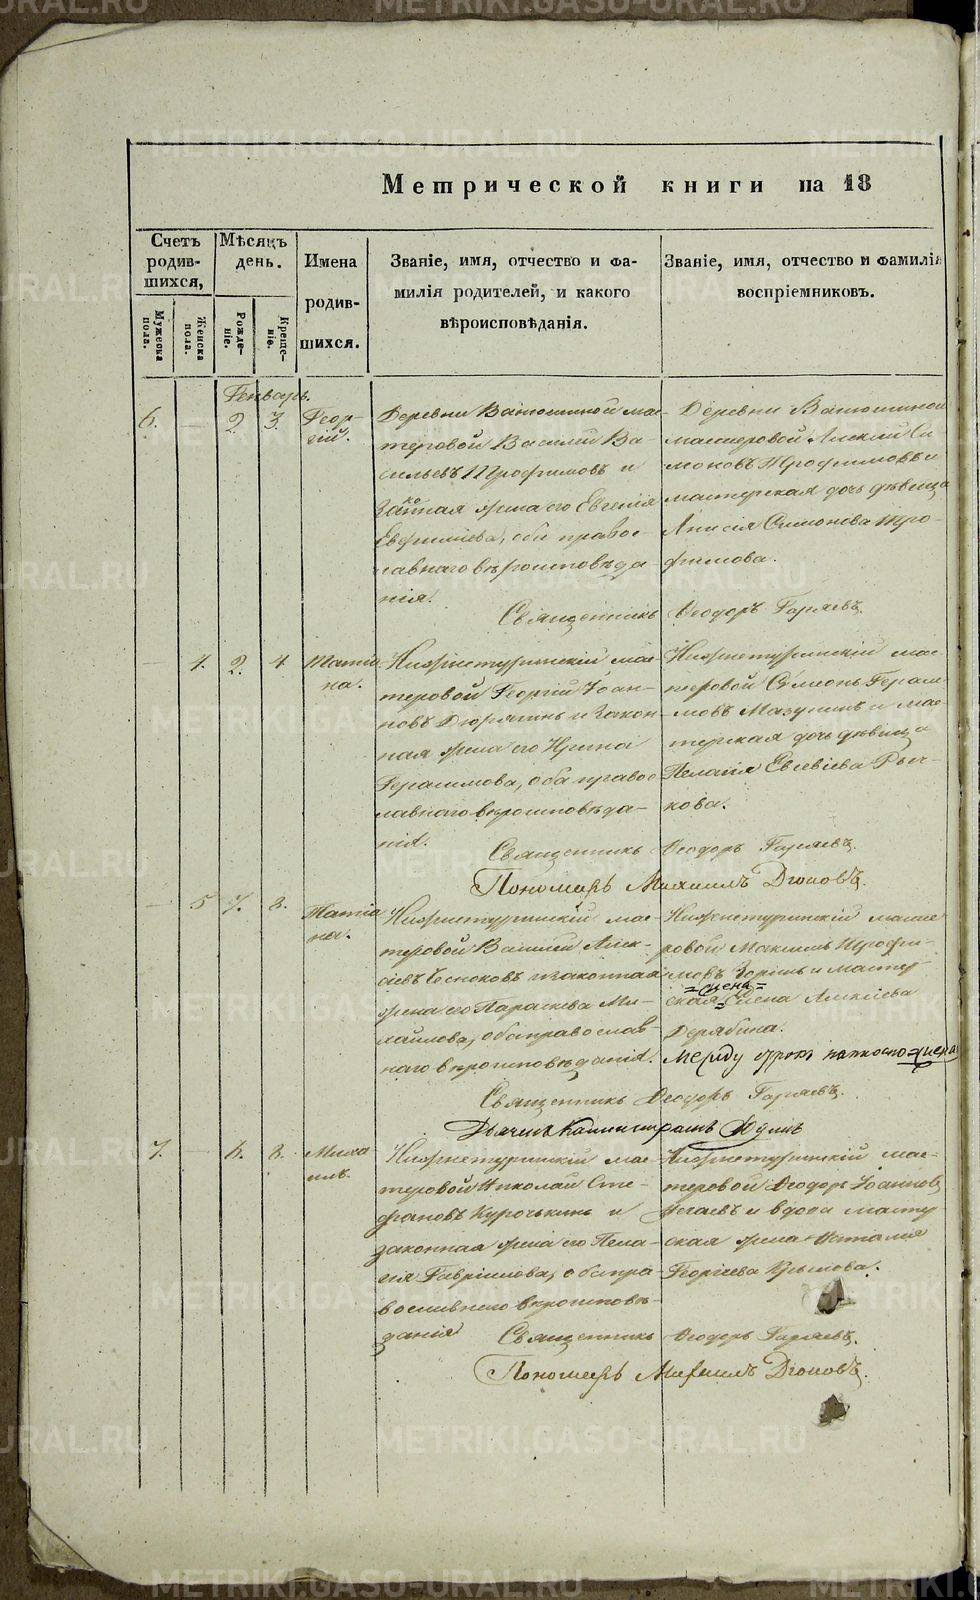 Метрической книги на 18
Счетъ родив-шихся,
Мѣсяцъ день.
Имена родив-шихся.
Званіе, имя, отчество и фа-
милія родителей, и какого
вѣроисповѣданія.
Званіе, имя, отчество и фамилія
воспріемниковъ.
Мужеска пола.
Женска пола.
Рожде-ніе.
Креще-ніе.
Генварь.
6. — 2. 3. Геор-
гій.
Деревни Ватюшиной мас-
теровой Василій Ва-
сильевъ Трофимовъ и
законная жена его Евгенія
Евфиміева, оба правос-
лавнаго вѣроисповѣда-
нія.
Деревни Ватюшиной
мастеровой Алексій Си
моновъ Трофимовъ и
мастерская дочь дѣвица
Анисія Симонова Тро-
фимова.
Священникъ Ѳеодоръ Гаряевъ.
— 4. 2. 4. Татіа
на.
Нижнетуринскій мас-
теровой Георгій Іоан-
новъ Дюрягинъ и закон
ная жена его Ирина
Герасимова, оба правос
лавнаго вѣроисповѣда-
нія.
Нижнетуринскій мас-
теровой Сѵмеонъ Герас
мовъ Мазунинъ и мас-
терская дочь дѣвица
Пелагія Евсевіева Рыч-
кова.
Священникъ Ѳеодоръ Гаряевъ.
Пономарь Михаилъ Дюповъ.
— 5. 7. 8. Татіа
на.
Нижнетуринскій мас-
теровой Василій Алек-
сіевъ Чесноковъ и законная
жена его Параскева Ми-
хайлова, оба православ
наго вѣроисповѣданія.
Нижнетуринскій масте
ровой Максимъ Трофи-
мовъ Зоринъ и мастер
ская =жена= Елена Алексіева
Дерябина.
Между строкъ написано =жена
Священникъ Ѳеодоръ Гаряевъ.
Дьячекъ Каллистратъ
7. — 6. 8. Миха
илъ.
Нижнетуринскій мас-
теровой Николай Сте-
фановъ Курочкинъ и
законная жена его Пела-
гія Гавріилова, оба пра-
вославнаго вѣроисповѣ-
данія
Нижнетуринскій мас-
теровой Ѳеодоръ Іоаннов
и вдова масте
ская жена Наталія
Георгіева Крылова.
Священникъ Ѳеодоръ Гаряевъ.
Пономарь Михаилъ Дюповъ.
METRIKI.GASO-URAL.RU